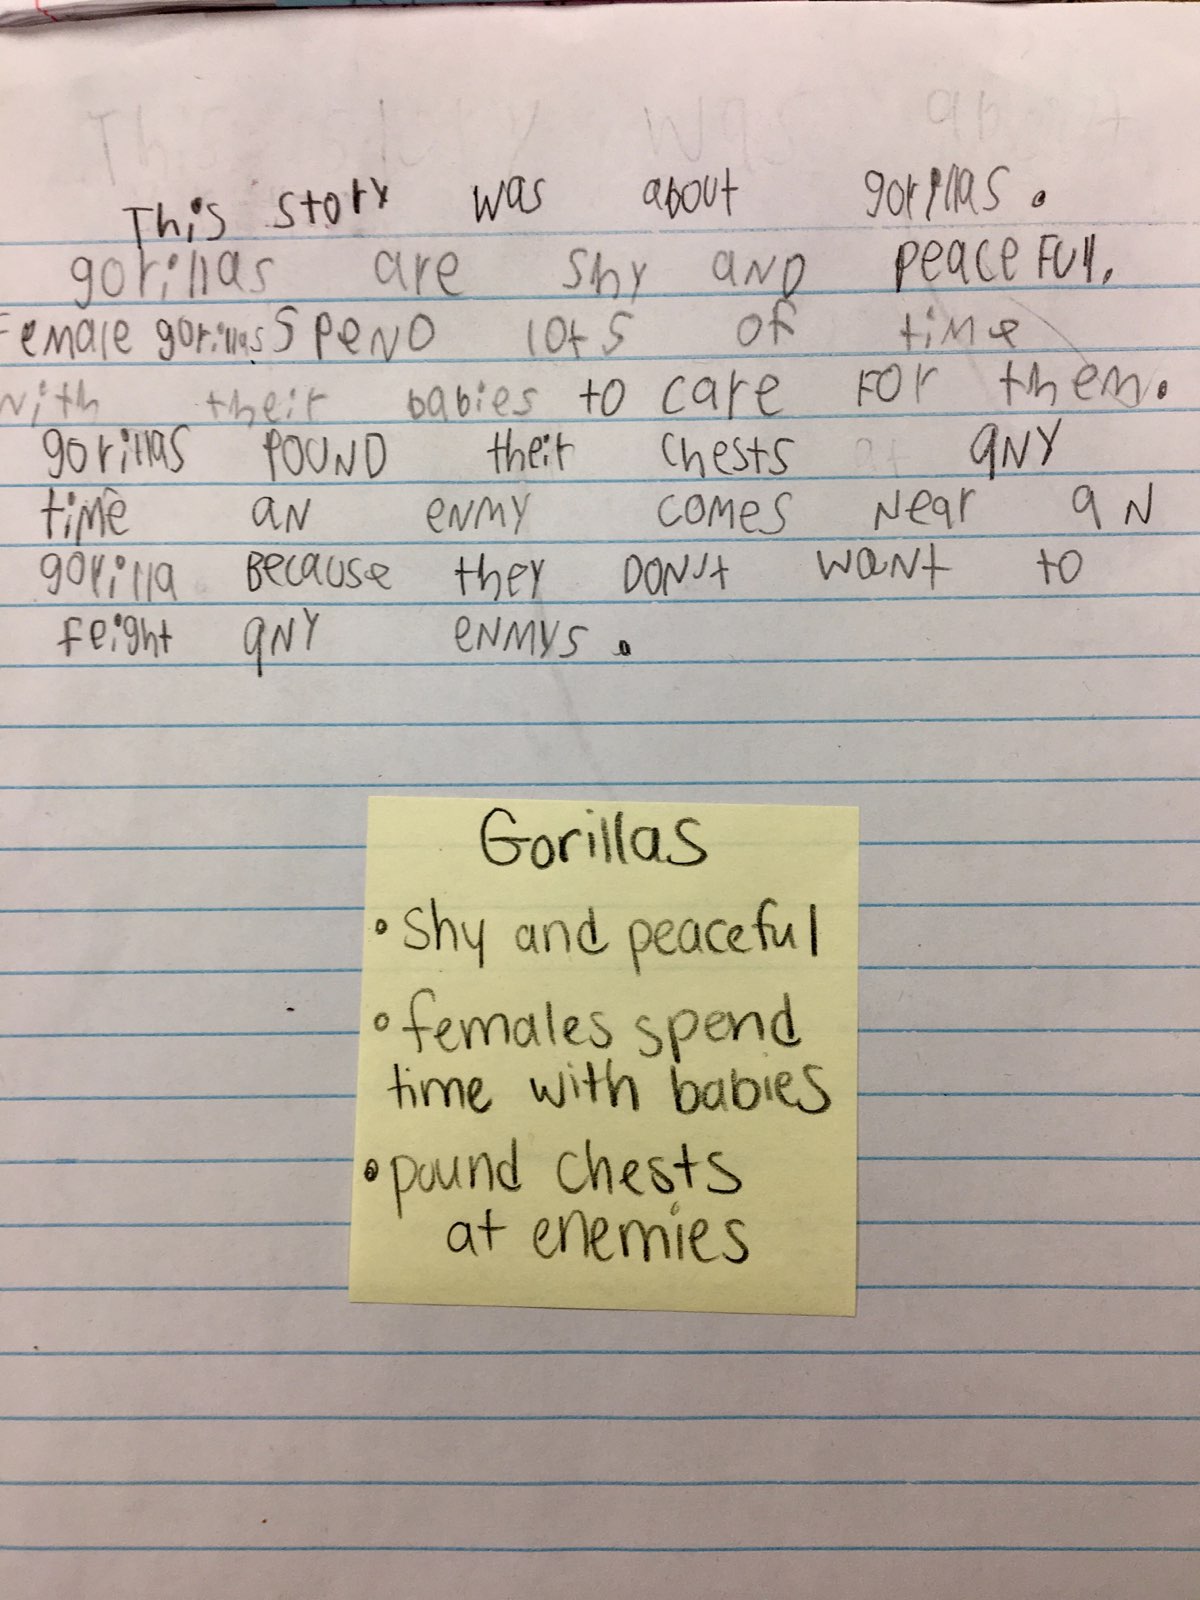 This story was about
This story was about gorillas.
gorillas are shy and peaceFull.
Female gorillas spend lots of time
with their babies to care For them.
gorillas pound their chests at any
time an enmy comes near an
gorilla Because they Don't want to
feight any enmys.
Gorillas
• Shy and peaceful
• females spend
time with babies
• pound chests
at enemies